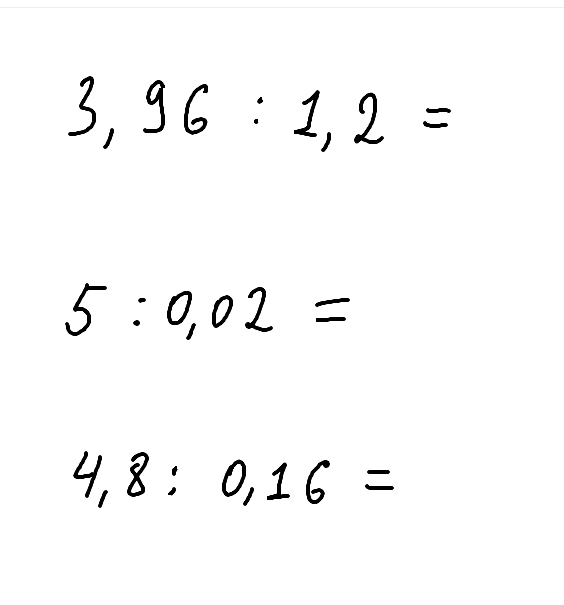 3,96 : 1,2 =
5 : 0,02 =
4,8 : 0,16 =